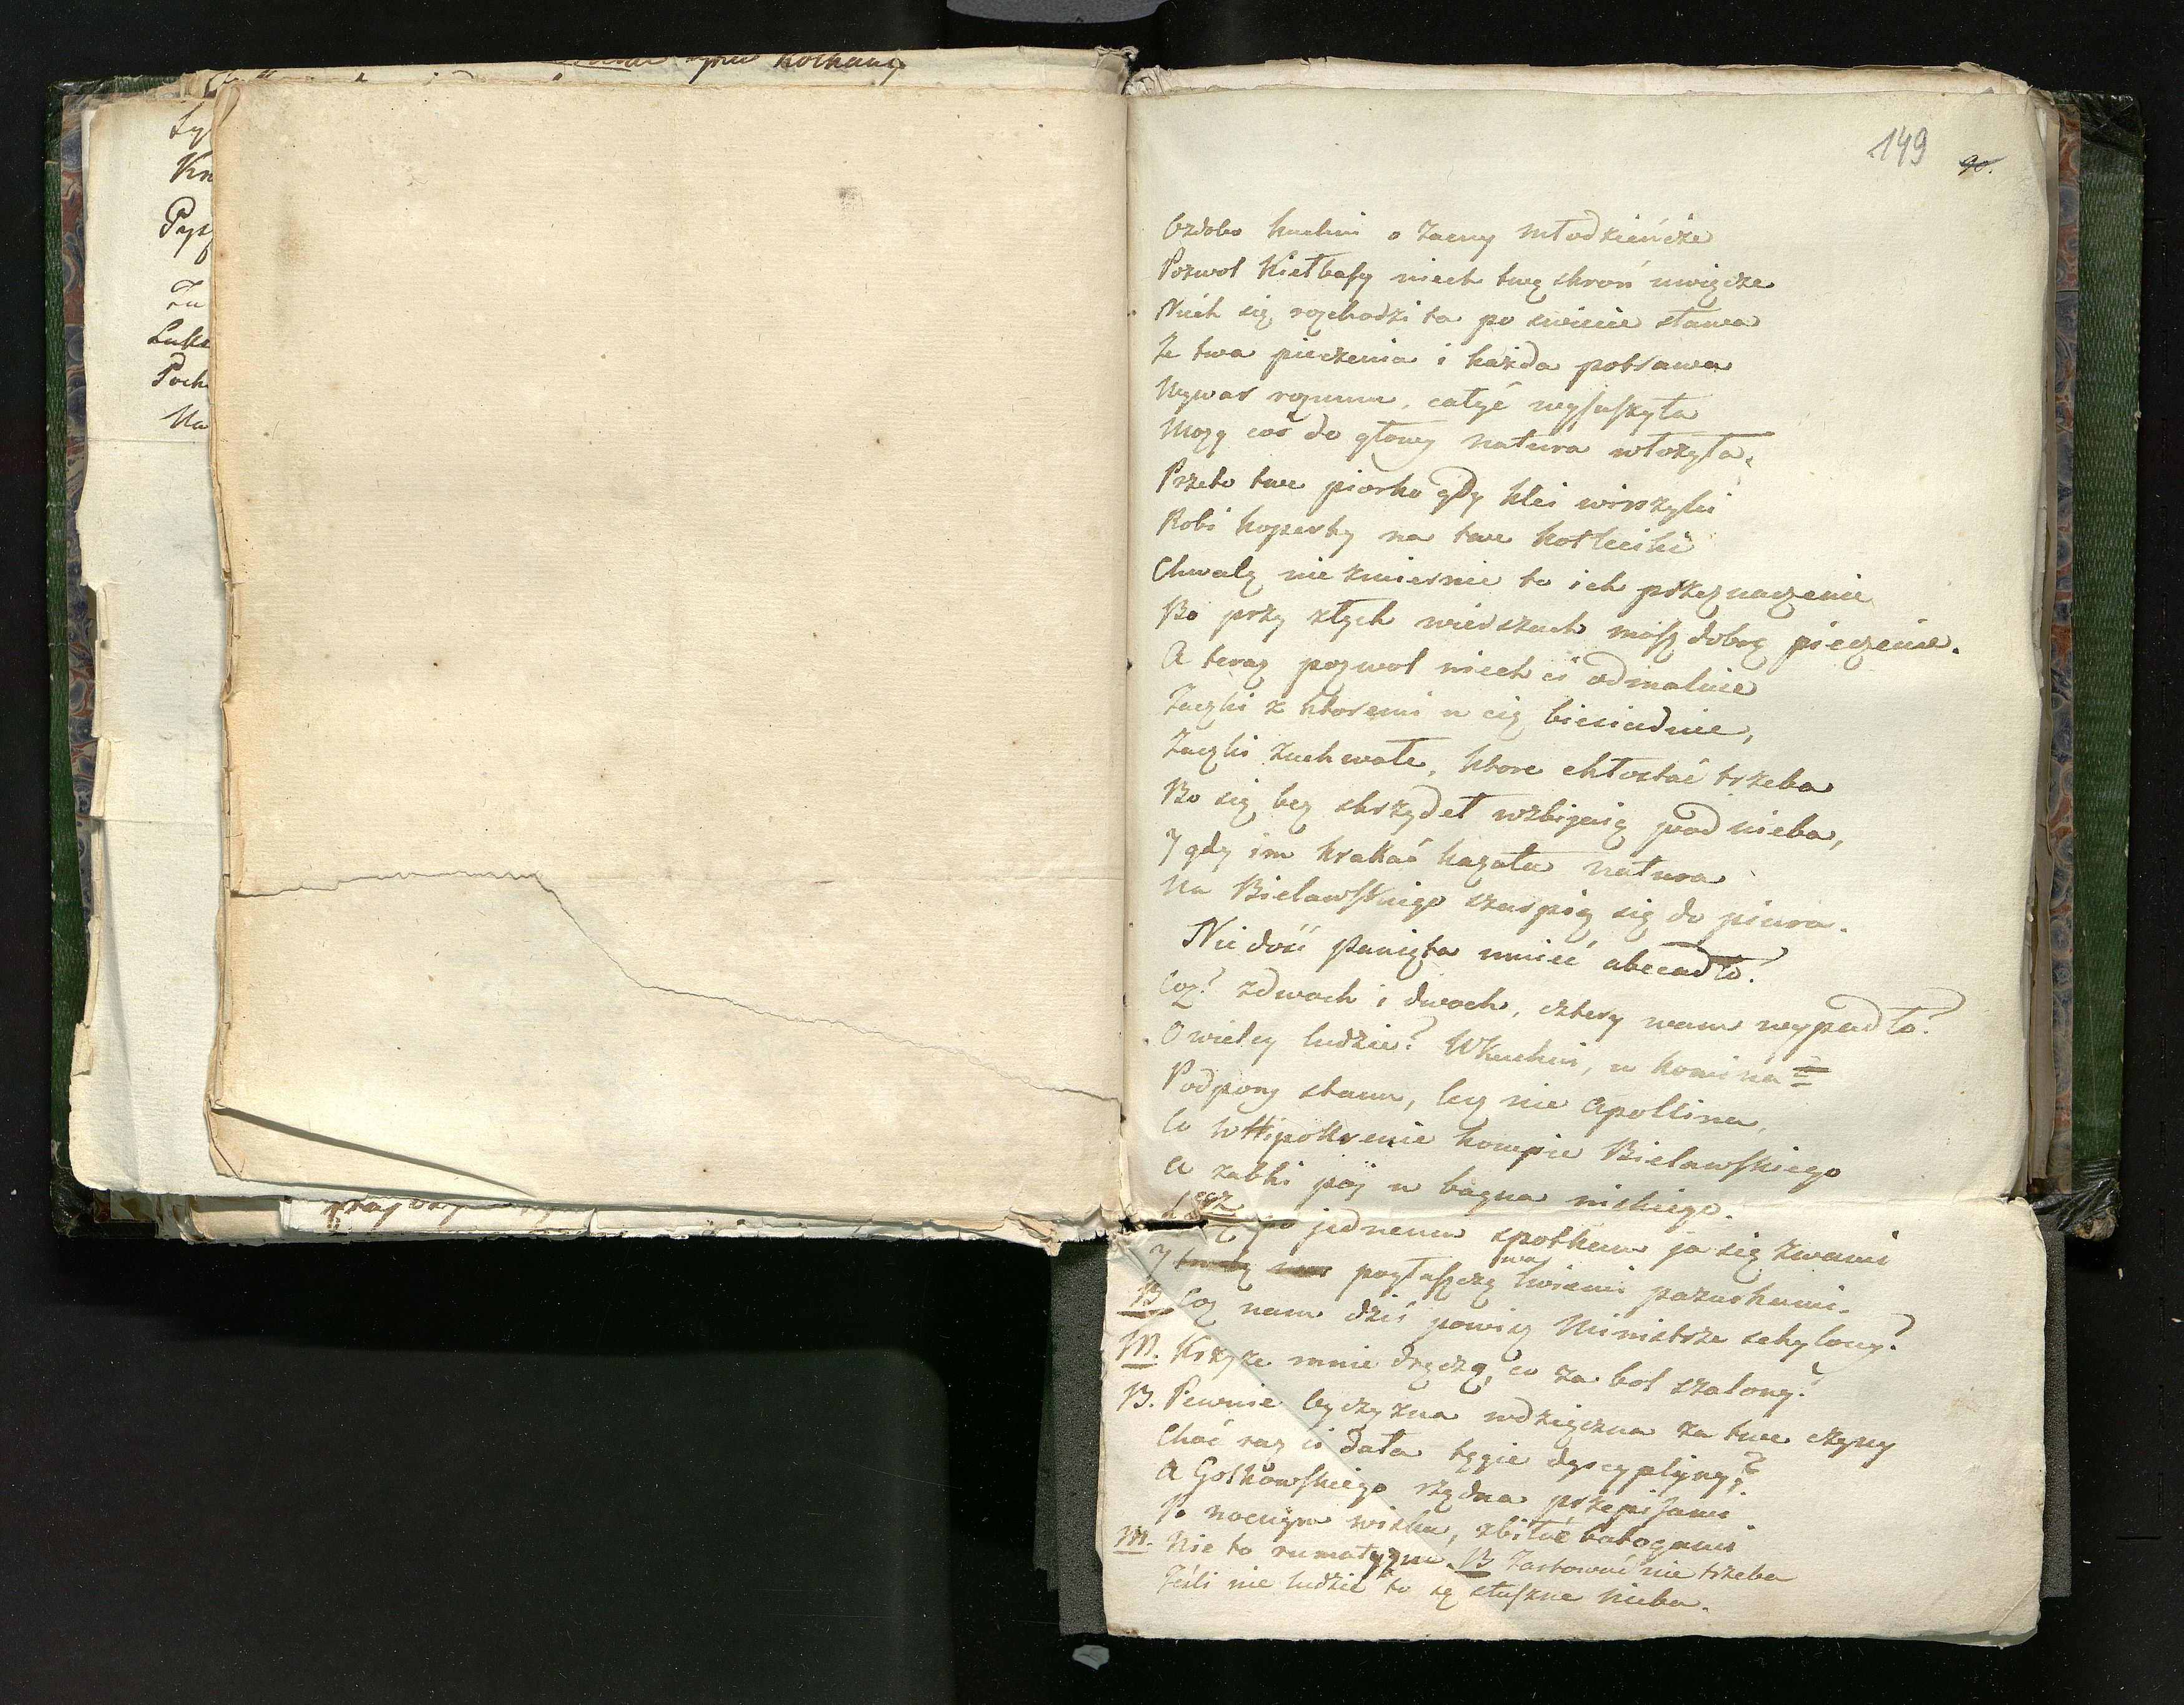 Kochany
Ly
Kn
Pysz
Zu
Luke
Poch
Na
149
90.
Ozdobo kuchni o zacny młodzieńcze
Pozwol Kiełbasy niech twą skroń uwiędze
Niech się rozchodzi ta po swiecie sława
Ze twa pieczenia i każda potrawa
Wywar rozumu, całyć wysuszyła
Mozg coć do głowy natura włożyła,
Przeto twe piorko gdy klei wirszyki
Robi koperty na twe kotleciki
Chwalę niezmiernie to ich przeznaczenie
Bo przy złych wierszach masz dobrą pieczenie.
A teraz pozwol niech ci odmaluie
Zaczki z ktoremi u cię biesiaduie,
Zaczki zuchwałe, ktore chłostać trzeba
Bo się bez skrzydeł wzbijaią pod nieba,
Y gdy im krakać kazała natura
Na Bielawskiego szarpią się do piura.
Nie dość Panięta umieć abecadło?
Coz? zdwoch i dwoch, cztery wam wypadło?
O wielcy ludzie? W kuchni, u komina
Podpory stanu, lecz nie Apollina,
Co w Hipokrenie kompie Bielawskiego
A zabki poj u bagna niskiego.
Lecz po jednemu spotkam ja się zwami
Y pogłaszczę lwiemi pazurkami.
B Coz nam dziś powisz Ministrze schylony?
M. Krzyze mnie dręczą, co za bol szalony?
B. Pewnie byczyzna wdzięczna za twe czyny
Choć raz ci dała tęgie dyscypliny?
A Golkowskiego rządna przepisami
Po nocnym wisku, zbiłać batogami
M. Nie to rumatyzm. B Zartować nie trzeba
Jeśli nie ludzie to są słuszne nieba.